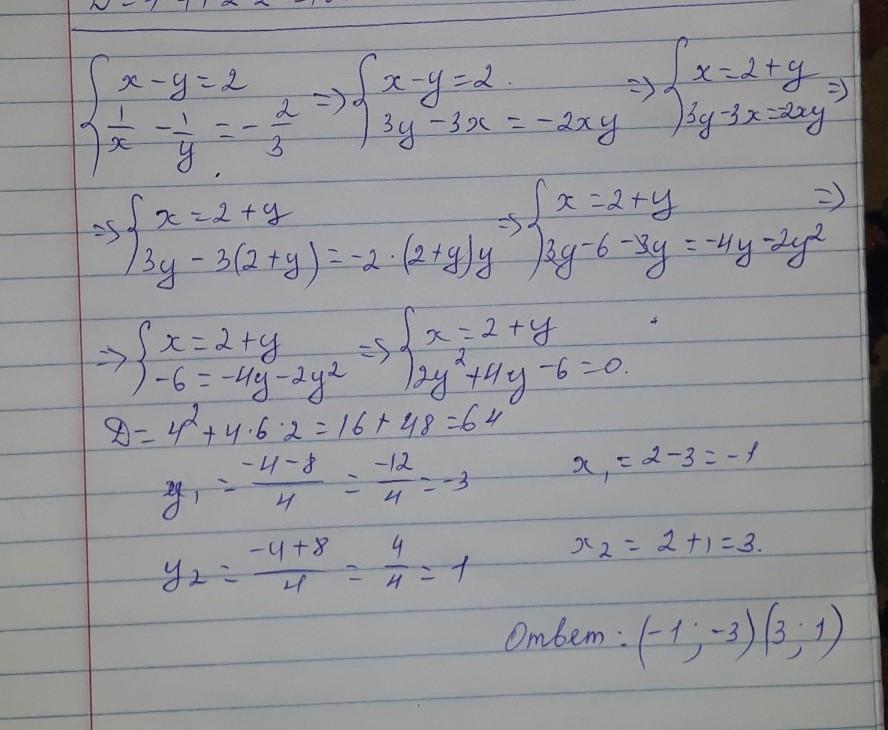 { x - y = 2 ; 1/x - 1/y = - 2/3 => { x - y = 2. ; 3y - 3x = -2xy => { x = 2 + y ; 3y - 3x = 2xy =>
=> { x = 2 + y ; 3y - 3(2 + y) = -2 · (2 + y)y => { x = 2 + y ; 3y - 6 - 3y = -4y - 2y² =>
=> { x = 2 + y ; -6 = -4y - 2y² => { x = 2 + y ; 2y² + 4y - 6 = 0.
D = 4² + 4·6·2 = 16 + 48 = 64
y₁ = (-4 - 8)/4 = -12/4 = -3 x₁ = 2 - 3 = -1
y₂ = (-4 + 8)/4 = 4/4 = 1 x₂ = 2 + 1 = 3.
Ответ: (-1; -3) (3; 1)